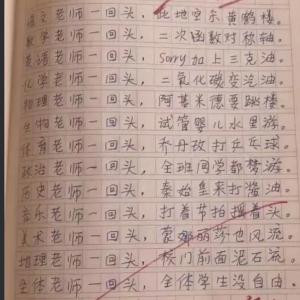 语文老师一回头，此地空余黄鹤楼。
数学老师一回头，二次函数对称轴。
英语老师一回头，sorry加上三克油。
化学老师一回头，二氧化碳变汽油。
物理老师一回头，阿基米德要跳楼。
生物老师一回头，试管婴儿水里游。
体育老师一回头，乔丹改打乒乓球。
政治老师一回头，全班同学都梦游。
历史老师一回头，秦始皇来打酱油。
音乐老师一回头，打着节拍摇着头。
美术老师一回头，蒙娜丽莎也风流。
地理老师一回头，校门前面泥石流。
全体老师一回头，全体学生没自由。